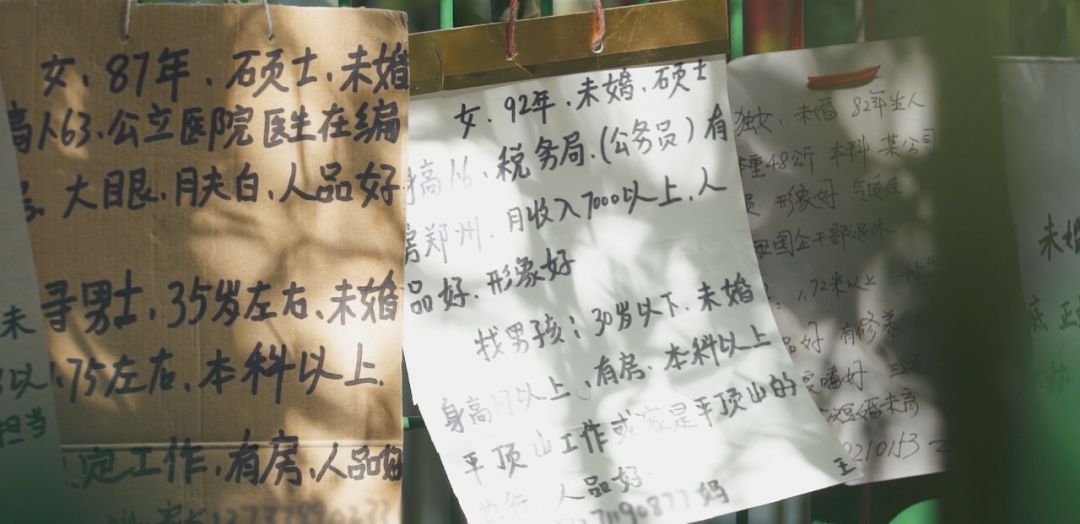 女、87年、硕士、未婚
高1.63、公立医院医生在编
大眼、肤白、人品好
寻男士、35岁左右、未婚
1.75左右、本科以上
定工作、有房、人品好
女、92年、未婚、硕士
身高1.6、税务局、(公务员)有
房郑州、月收入7000以上、人
品好、形象好
找男孩：30岁以下、未婚
身高1.7以上、有房、本科以上
平顶山工作或家是平顶山的
人品好
妈
王
独女、未婚 82年生人
体重48公斤 本科 某公司
形象好 气质佳
母国企干部退休
1.72米以上
品好 有修养
嗜好
短婚未育
210153
未
以
担当
未婚
底 正
称